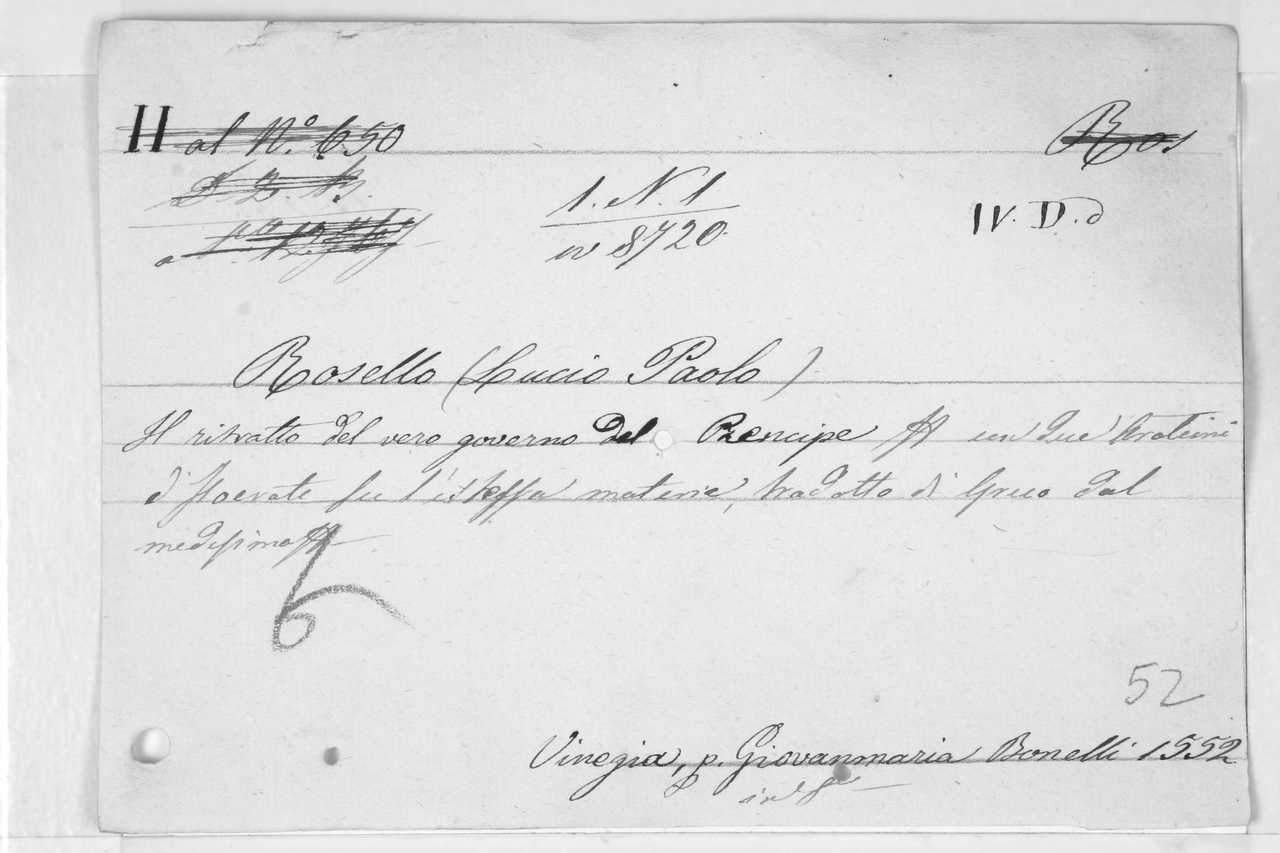 H al N.º 650
Ros
1. N. 1
IV. D. d
8720
Rosello (Lucio Paolo)
Il ritratto del vero governo del Prencipe con due
d'Isocrate su l'istessa materie, tradotto di Greco dal
medesimo
6
52
Vinegia, p. Giovanmaria Bonelli 1552
in 8º